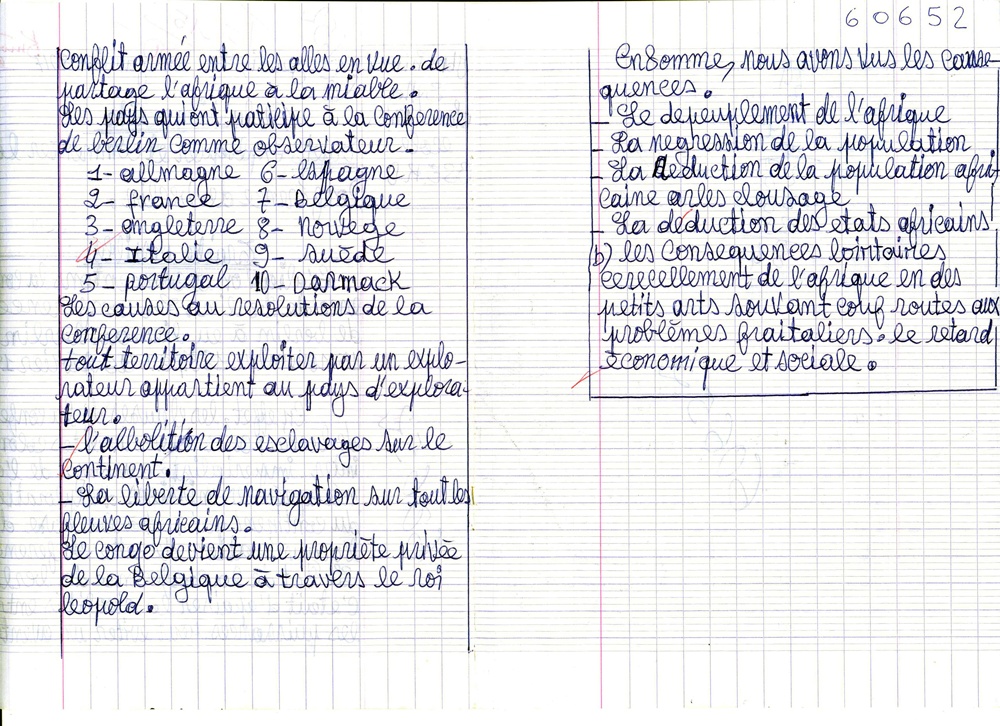 60652
conflit armée entre les alles en vue. de
partage l'afrique à la miable.
Les pays qui ont patilipe à la conference
de berlin comme observateur.
1- allmagne 6- Espagne
2- france 7- Belgique
3- engleterre 8- Norvège
4- Italie 9- suède
5- portugal 10- Darmack
Les causes au resolutions de la
conference.
tout territoire exploiter par un explo-
rateur appartient au pays d'explora-
teur.
- l'albolition des esclavages sur le
continent.
- La liberte de navigation sur tout les
fleuves africains.
Le congo devient une propriète privée
de la Belgique à travers le roi
leopold.
Ensomme, nous avons vus les conse-
quences.
- Le depeuplement de l'afrique
- La negression de la population
- La deduction de la population afri-
caine arles elousage
- La déduction des etats africains
b) les consequences lointaires
cerecellement de l'afrique en des
petits arts souvant couf routes aux
problèmes fraitaliers. le retard
économique et sociale.